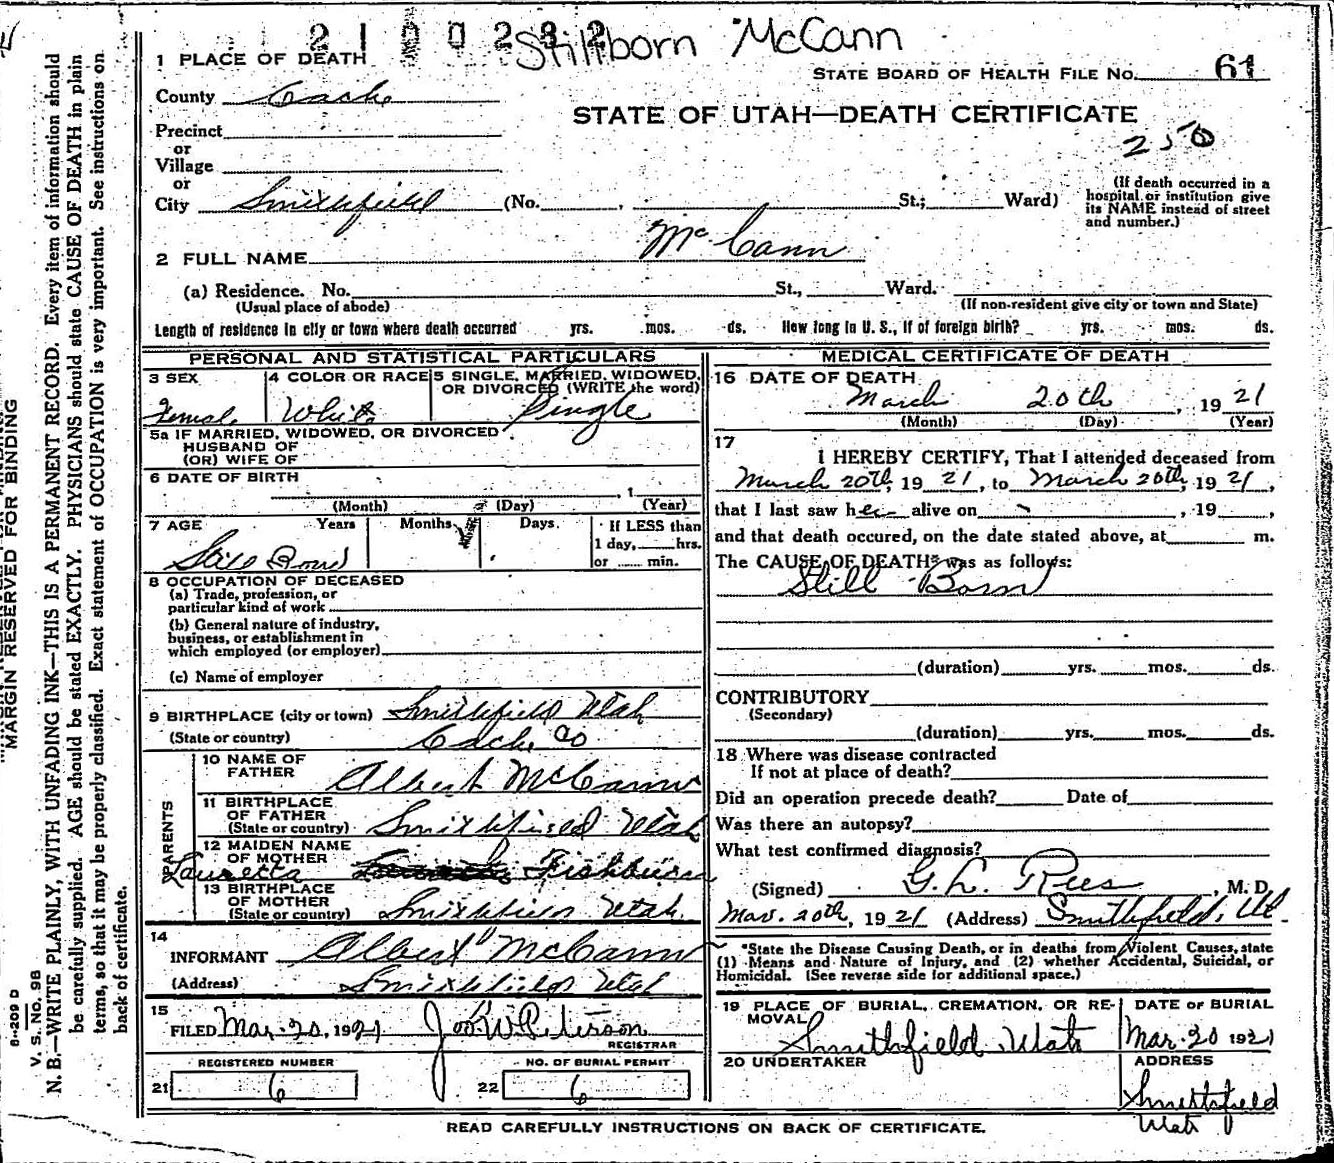 2100232
Stillborn McCann
1 PLACE OF DEATH
STATE BOARD OF HEALTH FILE No. 61
County Cache
STATE OF UTAH—DEATH CERTIFICATE
250
Precinct
or
Village
or
City Smithfield (No. , St.; Ward)
(If death occurred in a
hospital or institution give
its NAME instead of street
and number.)
2 FULL NAME McCann
(a) Residence. No. St., Ward.
(Usual place of abode) (If non-resident give city or town and State)
Length of residence in city or town where death occurred yrs. mos. ds. How long in U. S., if of foreign birth? yrs. mos. ds.
PERSONAL AND STATISTICAL PARTICULARS
3 SEX 4 COLOR OR RACE 5 SINGLE, MARRIED, WIDOWED,
OR DIVORCED (WRITE the word)
Female White Single
5a IF MARRIED, WIDOWED, OR DIVORCED
HUSBAND OF
(OR) WIFE OF
6 DATE OF BIRTH
, 1
(Month) (Day) (Year)
7 AGE Years Months Days If LESS than
1 day, hrs.
or min.
Still Born
8 OCCUPATION OF DECEASED
(a) Trade, profession, or
particular kind of work
(b) General nature of industry,
business, or establishment in
which employed (or employer)
(c) Name of employer
9 BIRTHPLACE (city or town) Smithfield Utah
(State or country) Cache Co
PARENTS
10 NAME OF
FATHER Albert McCann
11 BIRTHPLACE
OF FATHER
(State or country) Smithfield Utah
12 MAIDEN NAME
OF MOTHER
Lauretta Fishburn
13 BIRTHPLACE
OF MOTHER
(State or country) Smithfield Utah.
14
INFORMANT Albert McCann
(Address) Smithfield Utah
15
FILED Mar. 20, 1921 Jos. W. Peterson
REGISTRAR
REGISTERED NUMBER NO. OF BURIAL PERMIT
21 6 22 6
MEDICAL CERTIFICATE OF DEATH
16 DATE OF DEATH
March 20th , 1921
(Month) (Day) (Year)
17
I HEREBY CERTIFY, That I attended deceased from
March 20th, 1921, to March 20th, 1921,
that I last saw her alive on , 19 ,
and that death occured, on the date stated above, at m.
The CAUSE OF DEATH* was as follows:
Still Born
(duration) yrs. mos. ds.
CONTRIBUTORY
(Secondary)
(duration) yrs. mos. ds.
18 Where was disease contracted
If not at place of death?
Did an operation precede death? Date of
Was there an autopsy?
What test confirmed diagnosis?
(Signed) G. L. Rees , M. D.
Mar. 20th, 1921 (Address) Smithfield, Ut.
*State the Disease Causing Death, or in deaths from Violent Causes, state
(1) Means and Nature of Injury, and (2) whether Accidental, Suicidal, or
Homicidal. (See reverse side for additional space.)
19 PLACE OF BURIAL, CREMATION, OR RE-
MOVAL
DATE OF BURIAL
Smithfield Utah Mar. 20 1921
20 UNDERTAKER ADDRESS
Smithfield
Utah
READ CAREFULLY INSTRUCTIONS ON BACK OF CERTIFICATE.
MARGIN RESERVED FOR BINDING
V. S. No. 98
N. B.—WRITE PLAINLY, WITH UNFADING INK—THIS IS A PERMANENT RECORD. Every item of information should
be carefully supplied. AGE should be stated EXACTLY. PHYSICIANS should state CAUSE OF DEATH in plain
terms, so that it may be properly classified. Exact statement of OCCUPATION is very important. See instructions on
back of certificate.